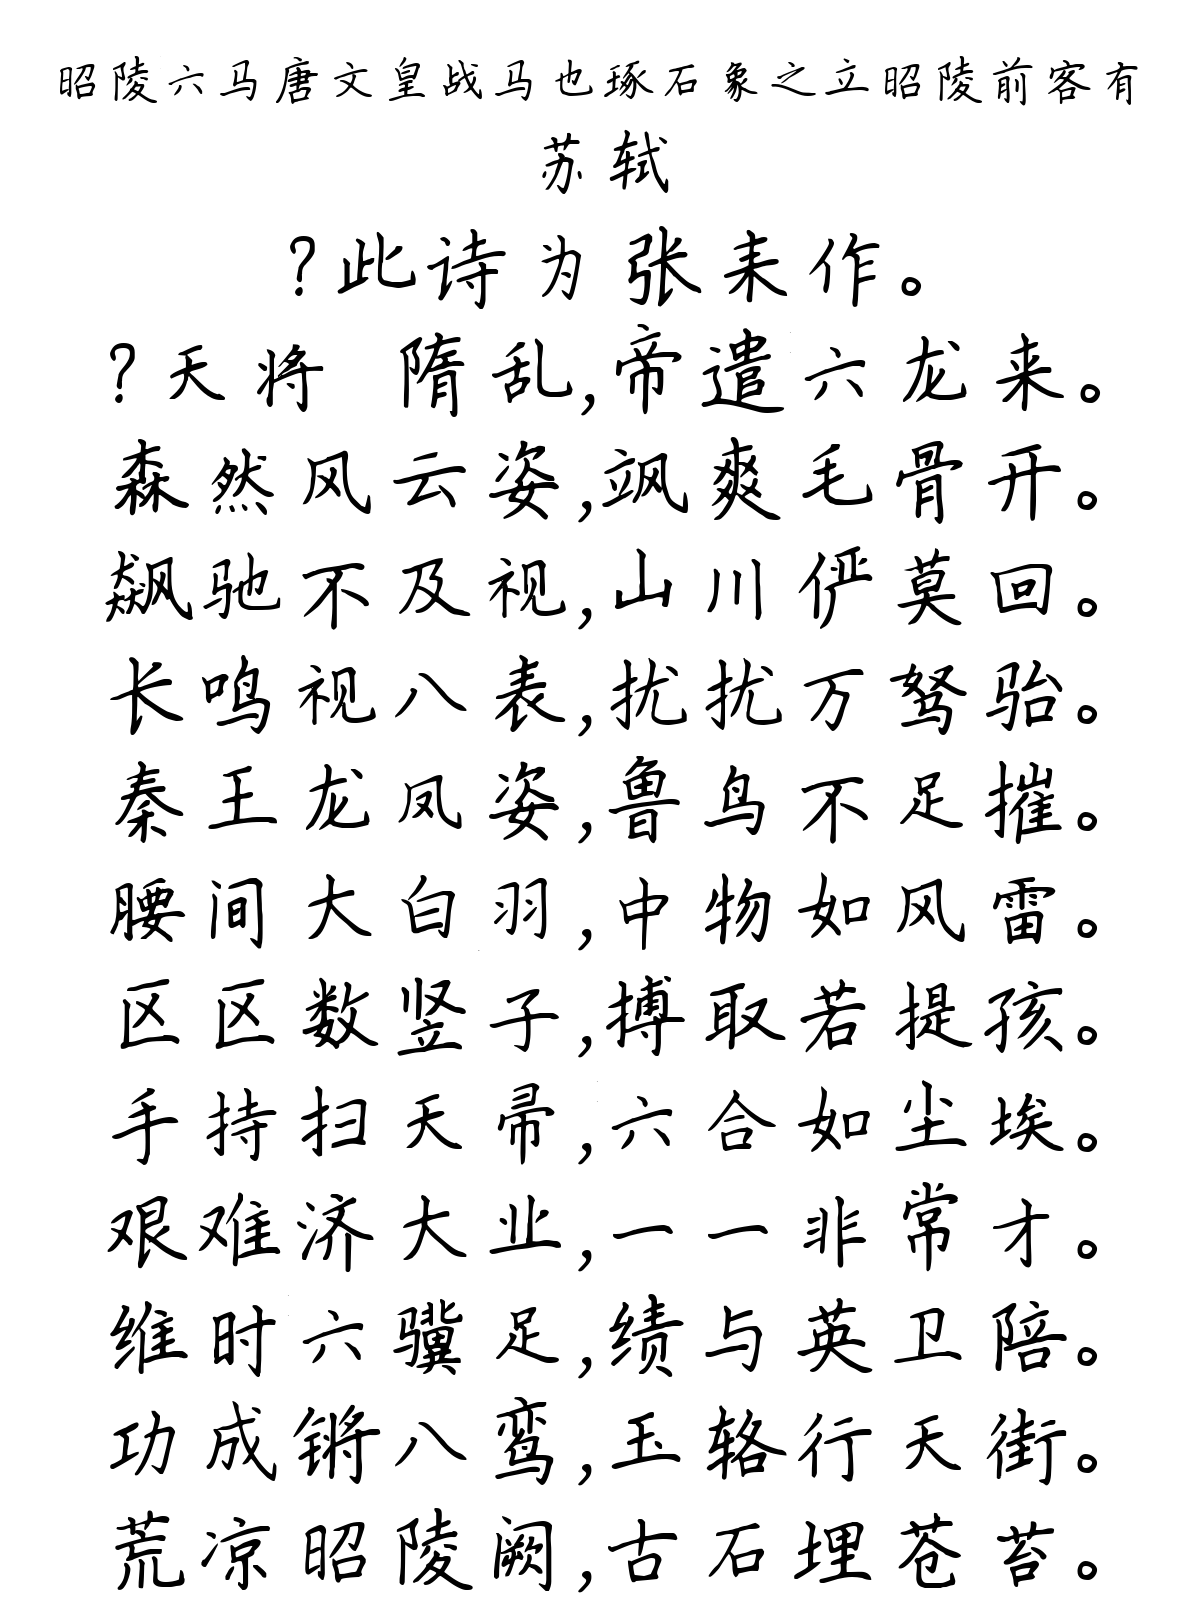 昭陵六马唐文皇战马也琢石象之立昭陵前客有
苏轼
?此诗为张耒作。
?天将 隋乱,帝遣六龙来。
森然风云姿,飒爽毛骨开。
飙驰不及视,山川俨莫回。
长鸣视八表,扰扰万驽骀。
秦王龙凤姿,鲁鸟不足摧。
腰间大白羽,中物如风雷。
区区数竖子,搏取若提孩。
手持扫天帚,六合如尘埃。
艰难济大业,一一非常才。
维时六骥足,绩与英卫陪。
功成锵八鸾,玉辂行天街。
荒凉昭陵阙,古石埋苍苔。